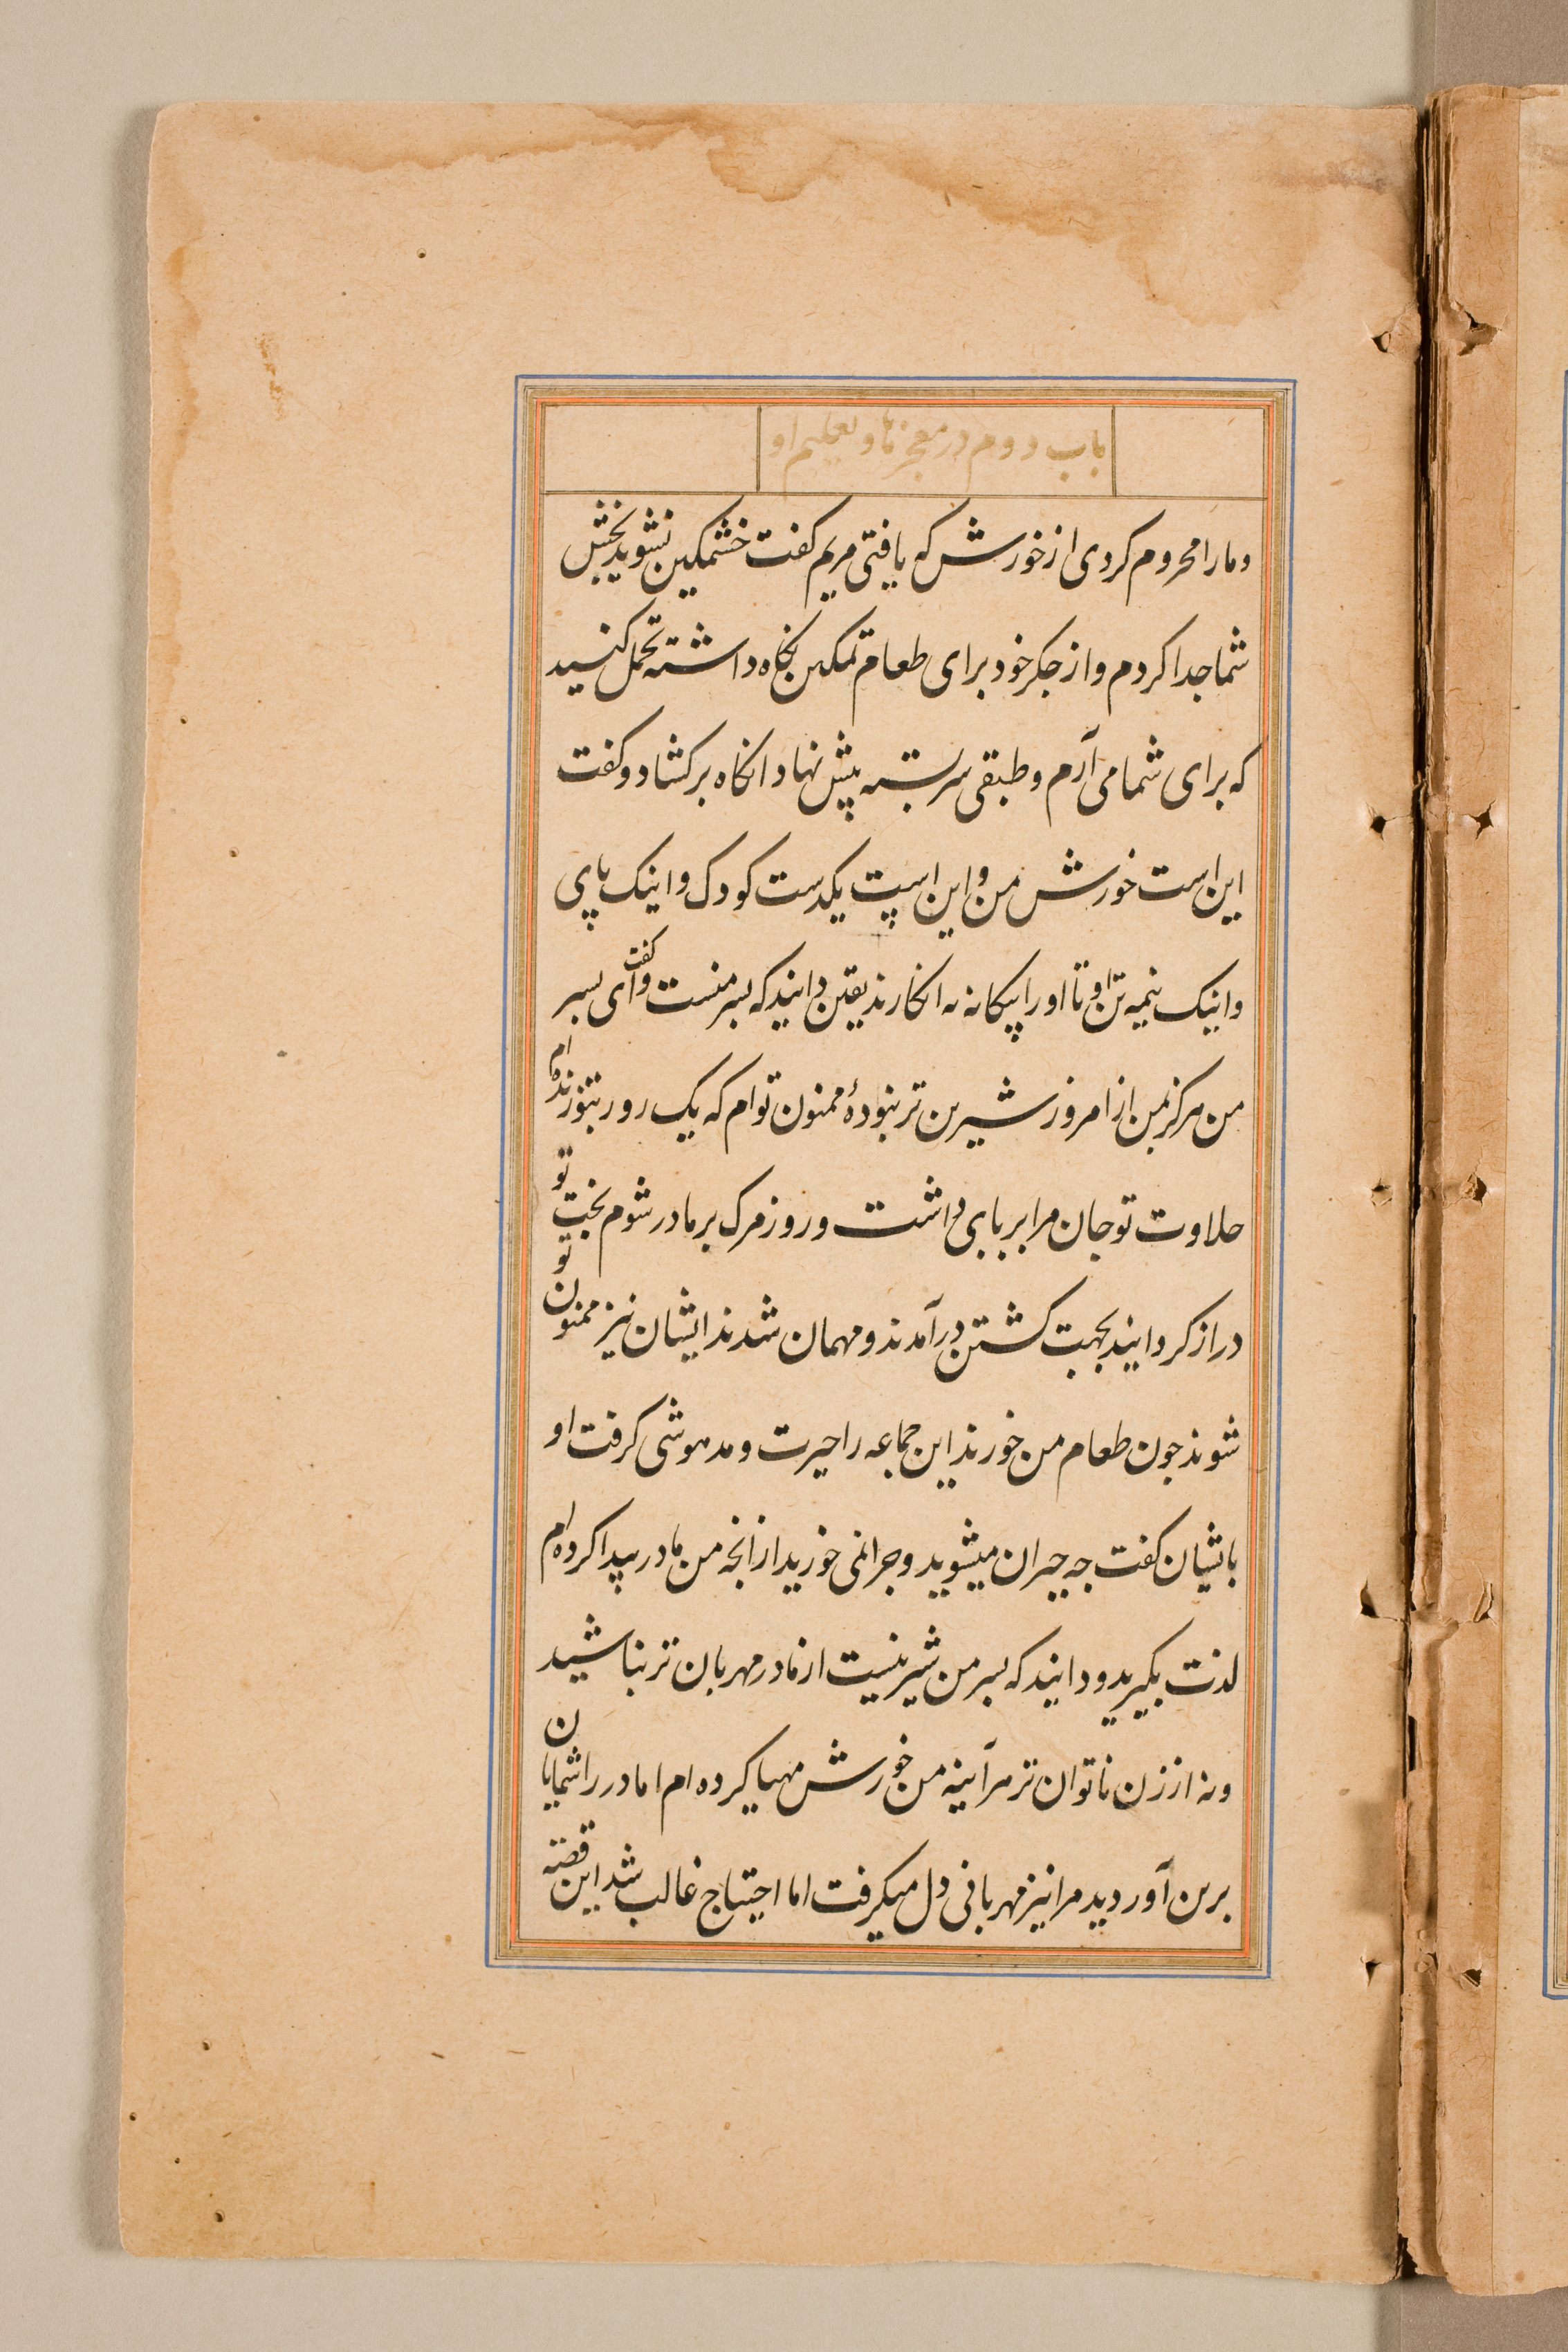 باب دوم در معجزها و تعلیم او
و ما را محروم کردی از خورش که یافتی مریم کفت خشمکین نشوید بخش
شما جدا کردم و از جکر خود برای طعام تمکین نکاه داشته تحمل کنید
که برای شما می آرم و طبقی سربسته پیش نهاد انکاه برکشاد و کفت
این است خورش من و این است یکدست کودک و اینک پای
و اینک نیمه تن او تا او را بیکانه نه انکارند یقین دانید که پسر منست و کفت ای پسر
من هرکز بمن از امروز شیرین تر نبودهٔ ممنون توام که یک روز بتو زنده ام
حلاوت تو جان مرا بر پای داشت و روز مرک بر مادر شوم بخت تو
دراز کردانید بجهت کشتن تو درآمدند و مهمان شدند ایشان نیز ممنون
شوند چون طعام من خورند این جماعه را حیرت و مدهوشی کرفت او
بایشان کفت چه حیران میشوید و چرا نمی خورید از انچه من مادر پیدا کرده ام
لذت بکیرید و دانید که پسر من شیرینست از مادر مهربان تر نباشید
و نه از زن ناتوان تر هرآینه من خورش مهیا کرده ام اما در را شمایان
برمن آوردید مرا نیز مهربانی دل میکرفت اما احتیاج غالب شد این قصه